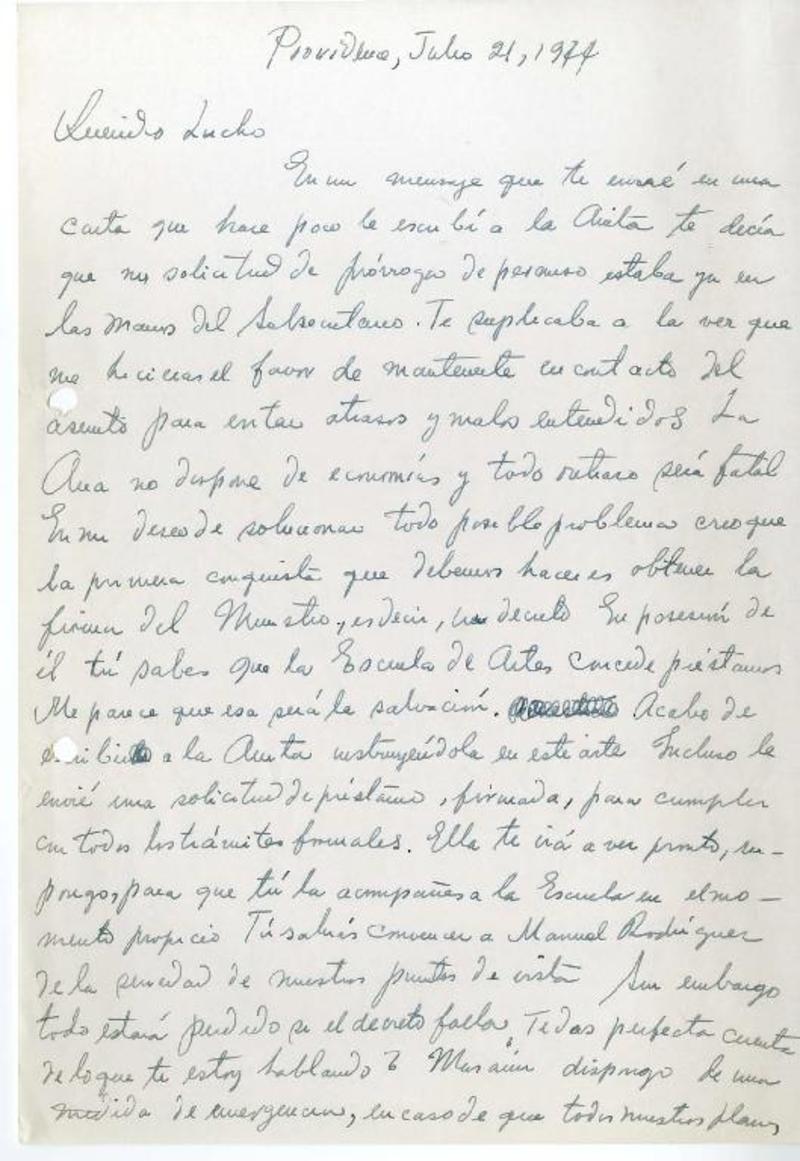 Providence, Julio 21, 1944
Querido Lucho
En un mensaje que te envié en una
carta que hace poco le escribí a la Anita te decía
que mi solicitud de prórroga de permiso estaba ya en
las manos del Subsecretario. Te suplicaba a la vez que
me hicieras el favor de mantenerte en contacto del
asunto para evitar atrasos y malos entendidos La
Ana no dispone de economías y todo retraso será fatal
En mi deseo de solucionar todo posible problema creo que
la primera conquista que debemos hacer es obtener la
firma del Ministro, es decir, un decreto En posesión de
él tú sabes que la Escuela de Artes concede préstamos
Me parece que esa será la salvación. Acabo de
escribirle a la Anita instruyéndola en este arte Incluso le
envié una solicitud de préstamo, firmada, para cumplir
con todos los trámites formales. Ella te irá a ver pronto, su-
pongo, para que tú la acompañes a la Escuela en el mo-
mento propicio Tú sabrás convencer a Manuel Rodríguez
de la seriedad de nuestros puntos de vista Sin embargo
todo estará perdido si el decreto falla ¿Te das perfecta cuenta
de lo que te estoy hablando? Mas aún dispongo de una
medida de emergencia, en caso de que todos nuestros planes